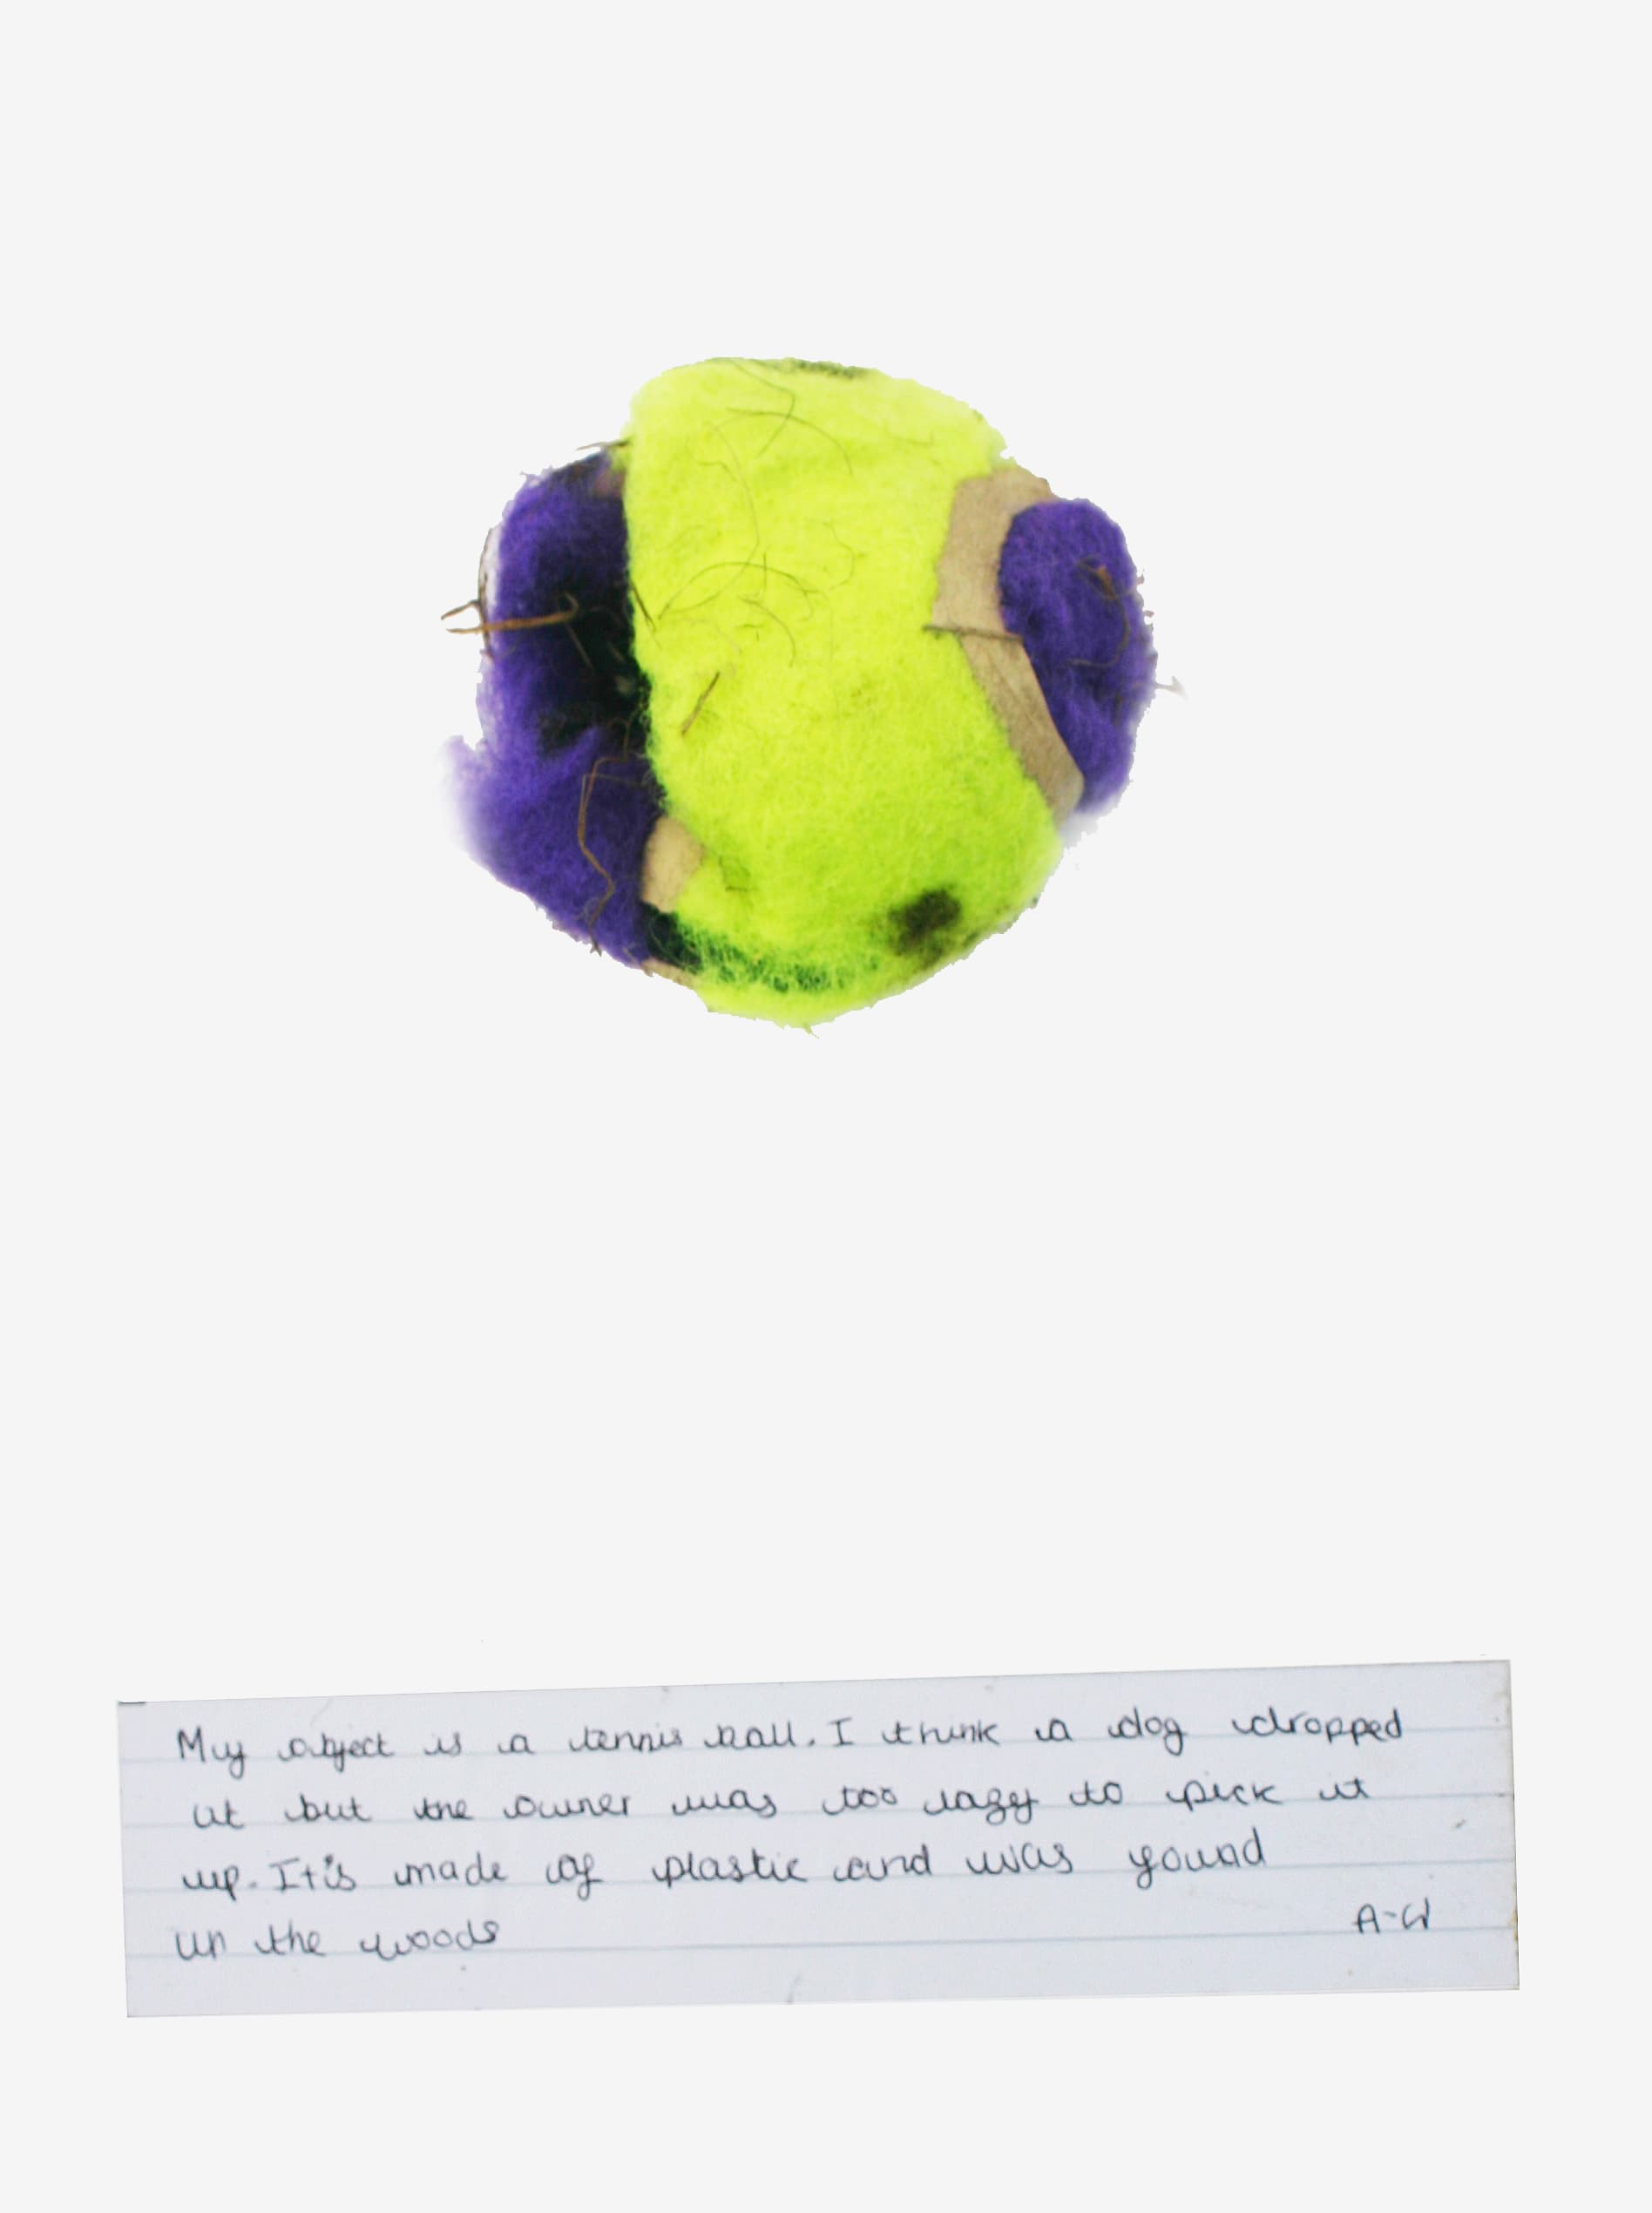 My object is a tennis ball. I think a dog dropped
it but the owner was too lazy to pick it
up. It is made of plastic and was found
in the woods
A-W